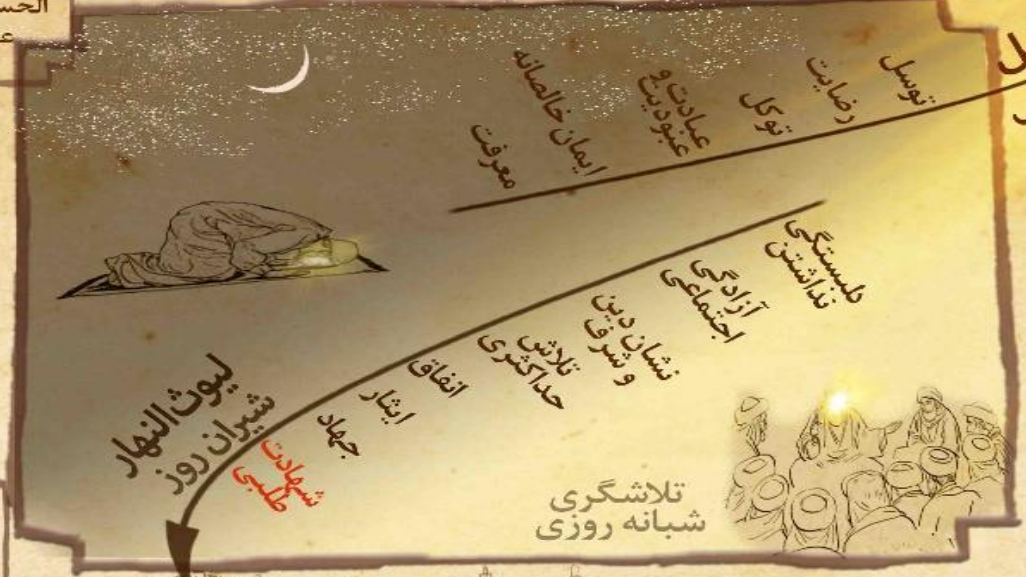 الحس
توسل
رضایت
توکل
عبادت و
عبودیت
ایمان خالصانه
معرفت
دلبستگی
نداشتن
آزادگی
اجتماعی
نشان دین
و شرف
تلاش
حداکثری
انفاق
ایثار
جهاد
شهادت
طلبی
لیوث النهار
شیران روز
تلاشگری
شبانه روزی